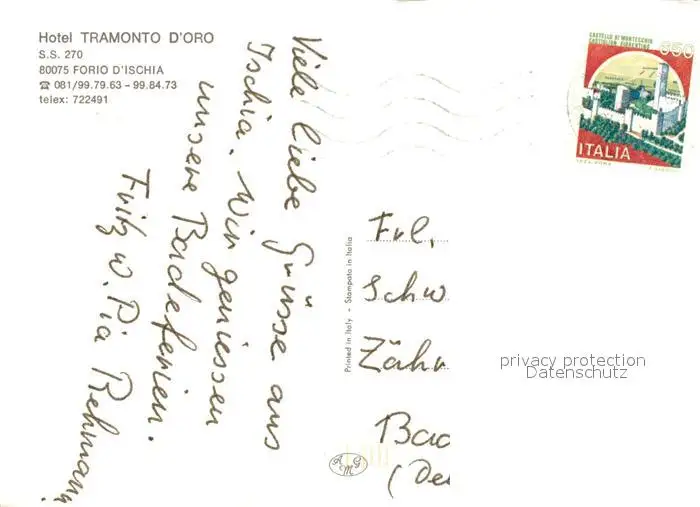 Hotel TRAMONTO D'ORO
S.S. 270
80075 FORIO D'ISCHIA
☎ 081/99.79.63 - 99.84.73
telex: 722491
Viele liebe Grüsse aus
Ischia. Wir geniessen
unsere Badeferien.
Fritz u. Pia Rehmann
Printed in Italy - Stampato in Italia
CASTELLO DI MONTECCHIO
CASTIGLION FIORENTINO
650
ITALIA
Frl.
Schw
Zähr
Bad
(De
privacy protection
Datenschutz
AMG